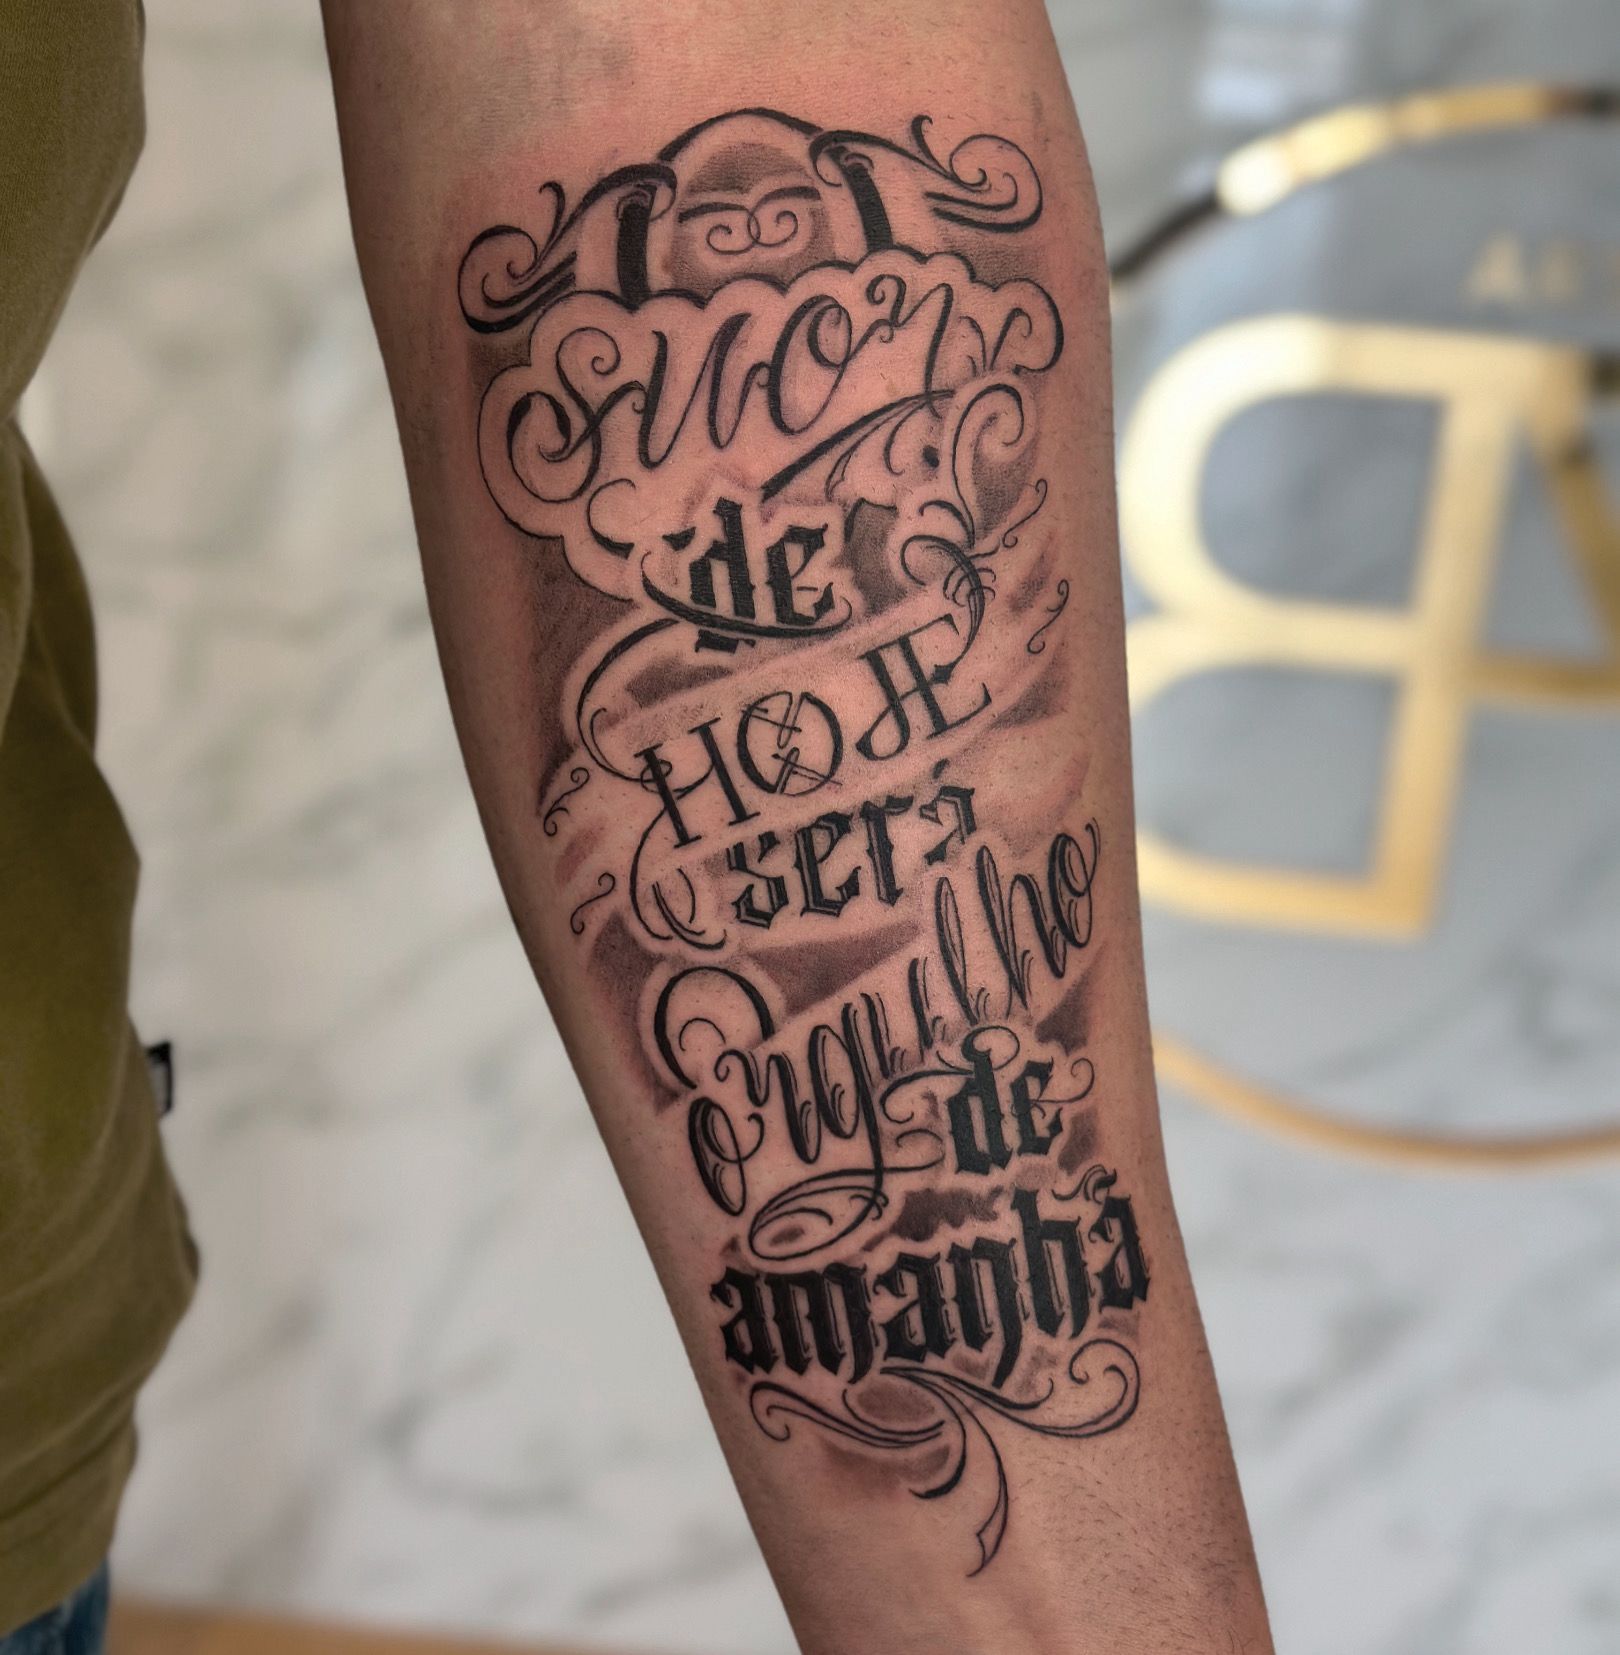 O
suor
de
HOJE
será
Orgulho
de
amanhã